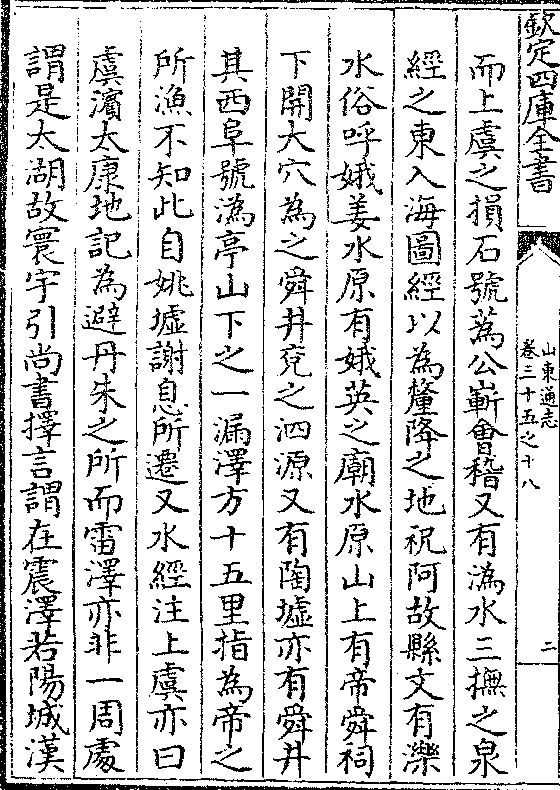 欽定四庫全書
山東通志
卷三十五之十八
三
而上虞之損石號蒍公嶄會稽又有溈水三撫之泉
經之東入海圖經以為釐降之地祝阿故縣文有濼
水俗呼娥姜水原有娥英之廟水原山上有帝舜祠
下開大穴為之舜井兗之泗源又有陶墟亦有舜井
其西阜號溈亭山下之一漏澤方十五里指為帝之
所漁不知此自姚墟謝息所遷又水經注上虞亦曰
虞濱太康地記為避丹朱之所而雷澤亦非一周處
謂是太湖故寰宇引尚書擇言謂在震澤若陽城漢